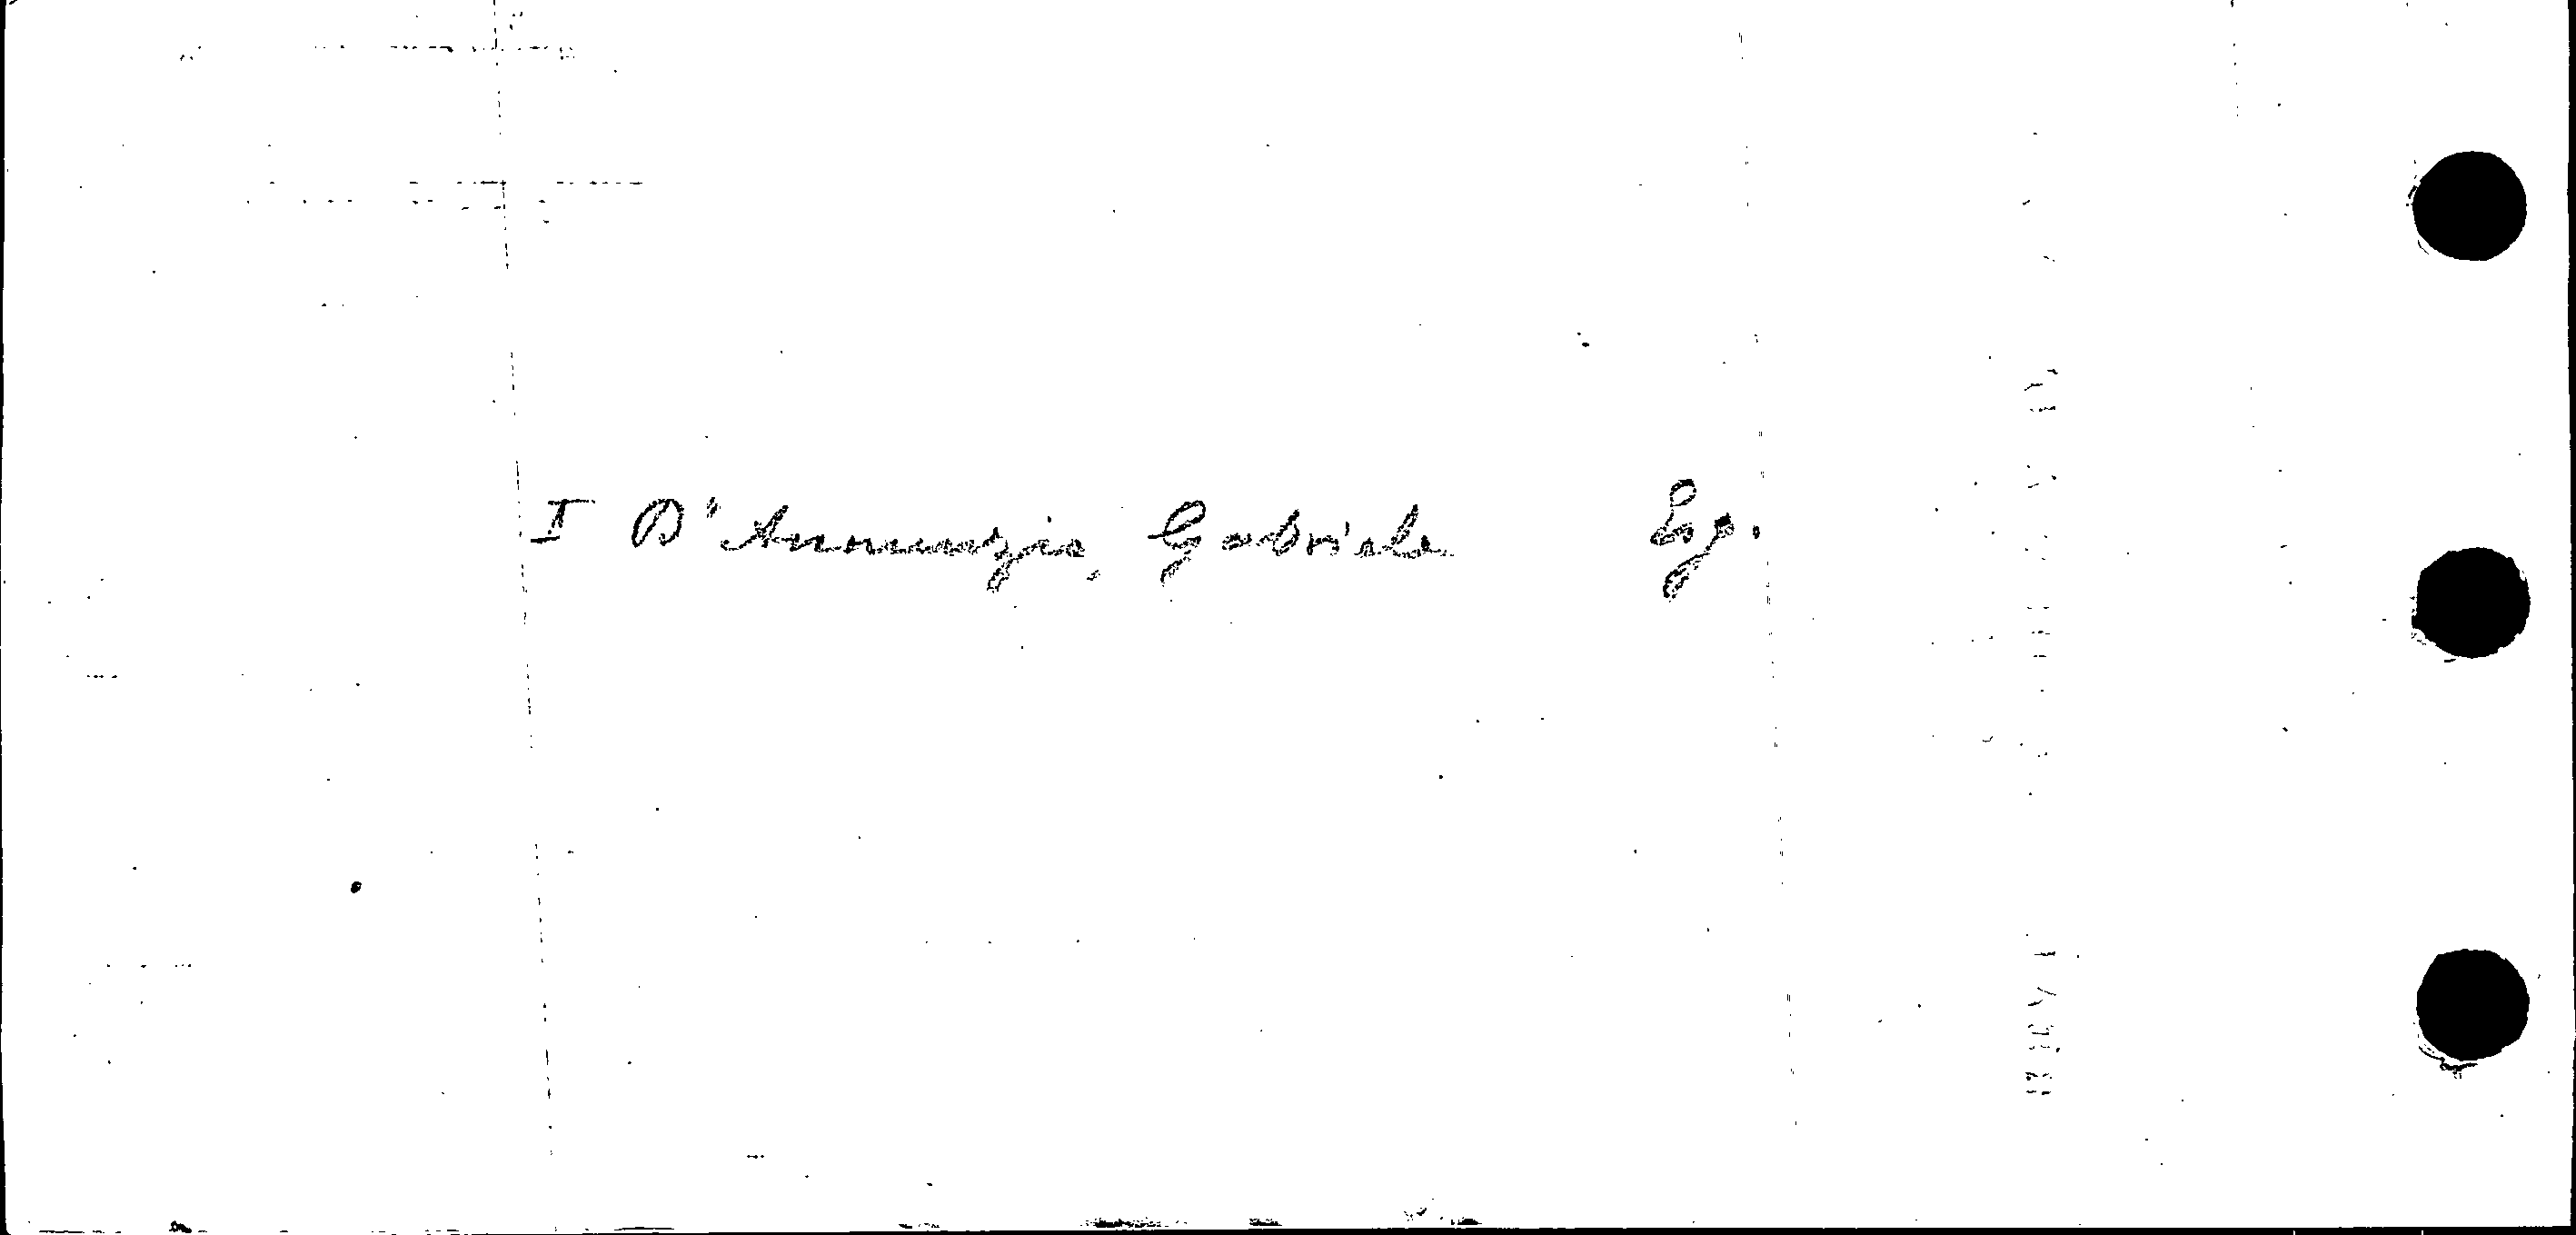 I D'Annunzio, Gabriele